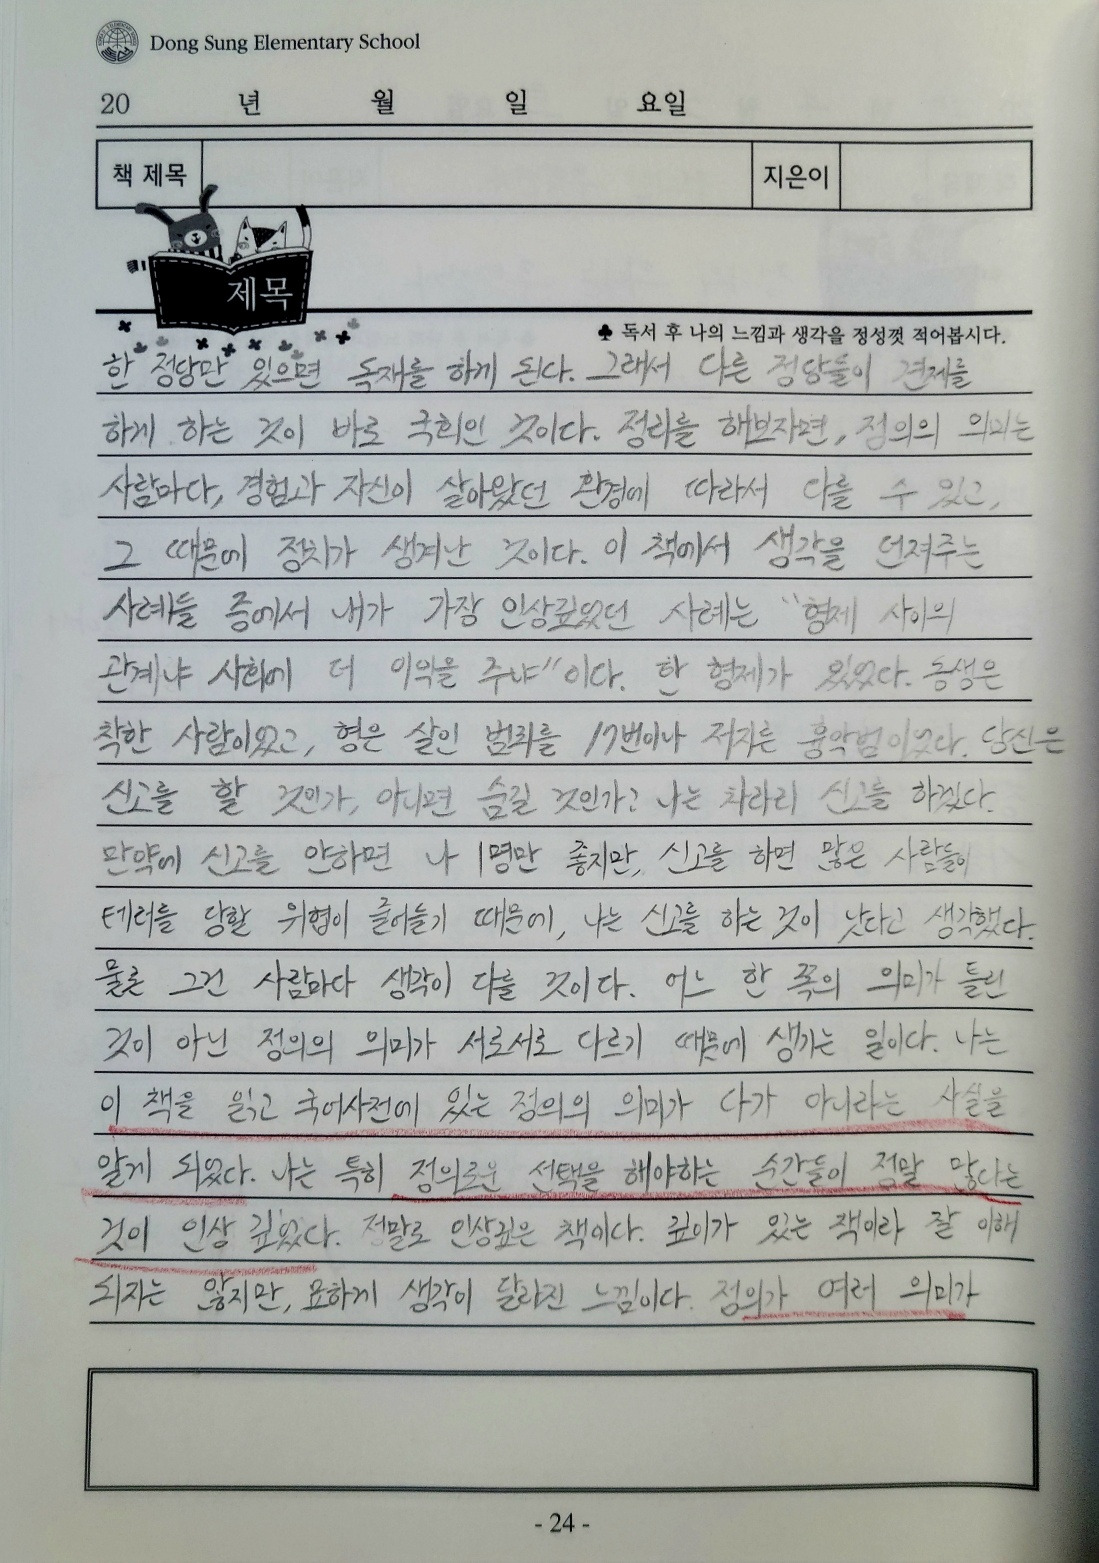 Dong Sung Elementary School
20 년 월 일 요일
책 제목 지은이
제목
♣ 독서 후 나의 느낌과 생각을 정성껏 적어봅시다.
한 정당만 있으면 독재를 하게 된다. 그래서 다른 정당들이 견제를
하게 하는 것이 바로 국회인 것이다. 정리를 해보자면, 정의의 의미는
사람마다, 경험과 자신이 살아왔던 환경에 따라서 다를 수 있고,
그 때문에 정치가 생겨난 것이다. 이 책에서 생각을 던져주는
사례들 중에서 내가 가장 인상깊었던 사례는 "형제 사이의
관계냐 사회에 더 이익을 주냐"이다. 한 형제가 있었다. 동생은
착한 사람이었고, 형은 살인 범죄를 17번이나 저지른 흉악범이었다. 당신은
신고를 할 것인가, 아니면 숨길 것인가? 나는 차라리 신고를 하겠다.
만약에 신고를 안하면 나 1명만 좋지만, 신고를 하면 많은 사람들이
테러를 당할 위협이 줄어들기 때문에, 나는 신고를 하는 것이 낫다고 생각했다.
물론 그건 사람마다 생각이 다를 것이다. 어느 한 쪽의 의미가 틀린
것이 아닌 정의의 의미가 서로서로 다르기 때문에 생기는 일이다. 나는
이 책을 읽고 국어사전에 있는 정의의 의미가 다가 아니라는 사실을
알게 되었다. 나는 특히 정의로운 선택을 해야하는 순간들이 정말 많다는
것이 인상 깊었다. 정말로 인상깊은 책이다. 깊이가 있는 책이라 잘 이해
되지는 않지만, 묘하게 생각이 달라진 느낌이다. 정의가 여러 의미가
- 24 -